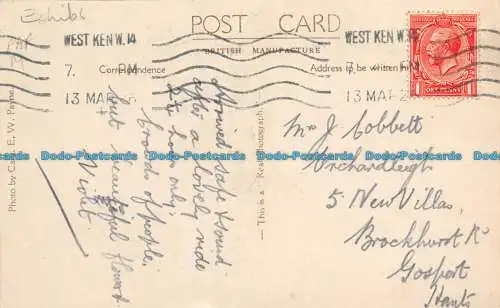 Exhib
POST CARD
BRITISH MANUFACTURE
WEST KEN W. 14
7. PM
13 MAR 2
WEST KEN W. 14
7. PM
13 MAR 2
Correspondence
Address to be written
ONE PENNY
Arrived safe & sound
after a lovely ride
hours only,
crowds of people,
but beautiful flowers.
Violet.
Mrs J Cobbett
Orchardleigh
5 New Villas,
Brockhurst Rd
Gosport
Hants
Photo by E. W. Payne.
This is a Real Photograph.
Dodo-Postcards Dodo-Postcards Dodo-Postcards Dodo-Postcards